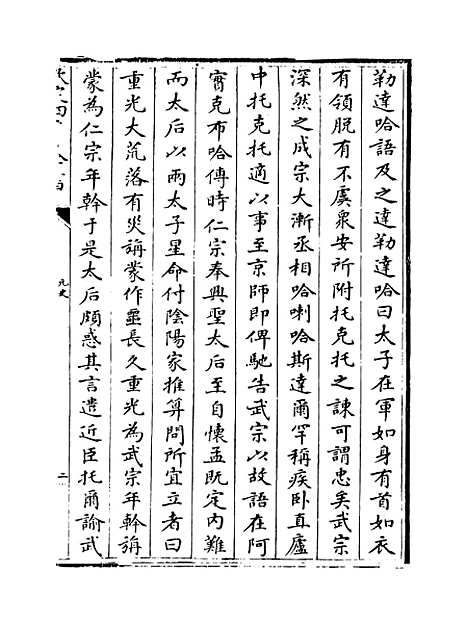 勒達哈語及之達勒達哈曰太子在軍如身有首如衣
有領脫有不虞衆安所附托克托之諫可謂忠矣武宗
深然之成宗大漸丞相哈喇哈斯達爾罕稱疾卧直廬
中托克托適以事至京師即俾馳告武宗以故語在阿
實克布哈傳時仁宗奉興聖太后至自懷孟既定内難
而太后以兩太子星命付陰陽家推算問所宜立者曰
重光大荒落有災旃蒙作噩長久重光為武宗年幹旃
蒙為仁宗年幹于是太后頗惑其言遣近臣托爾諭武
元史
二